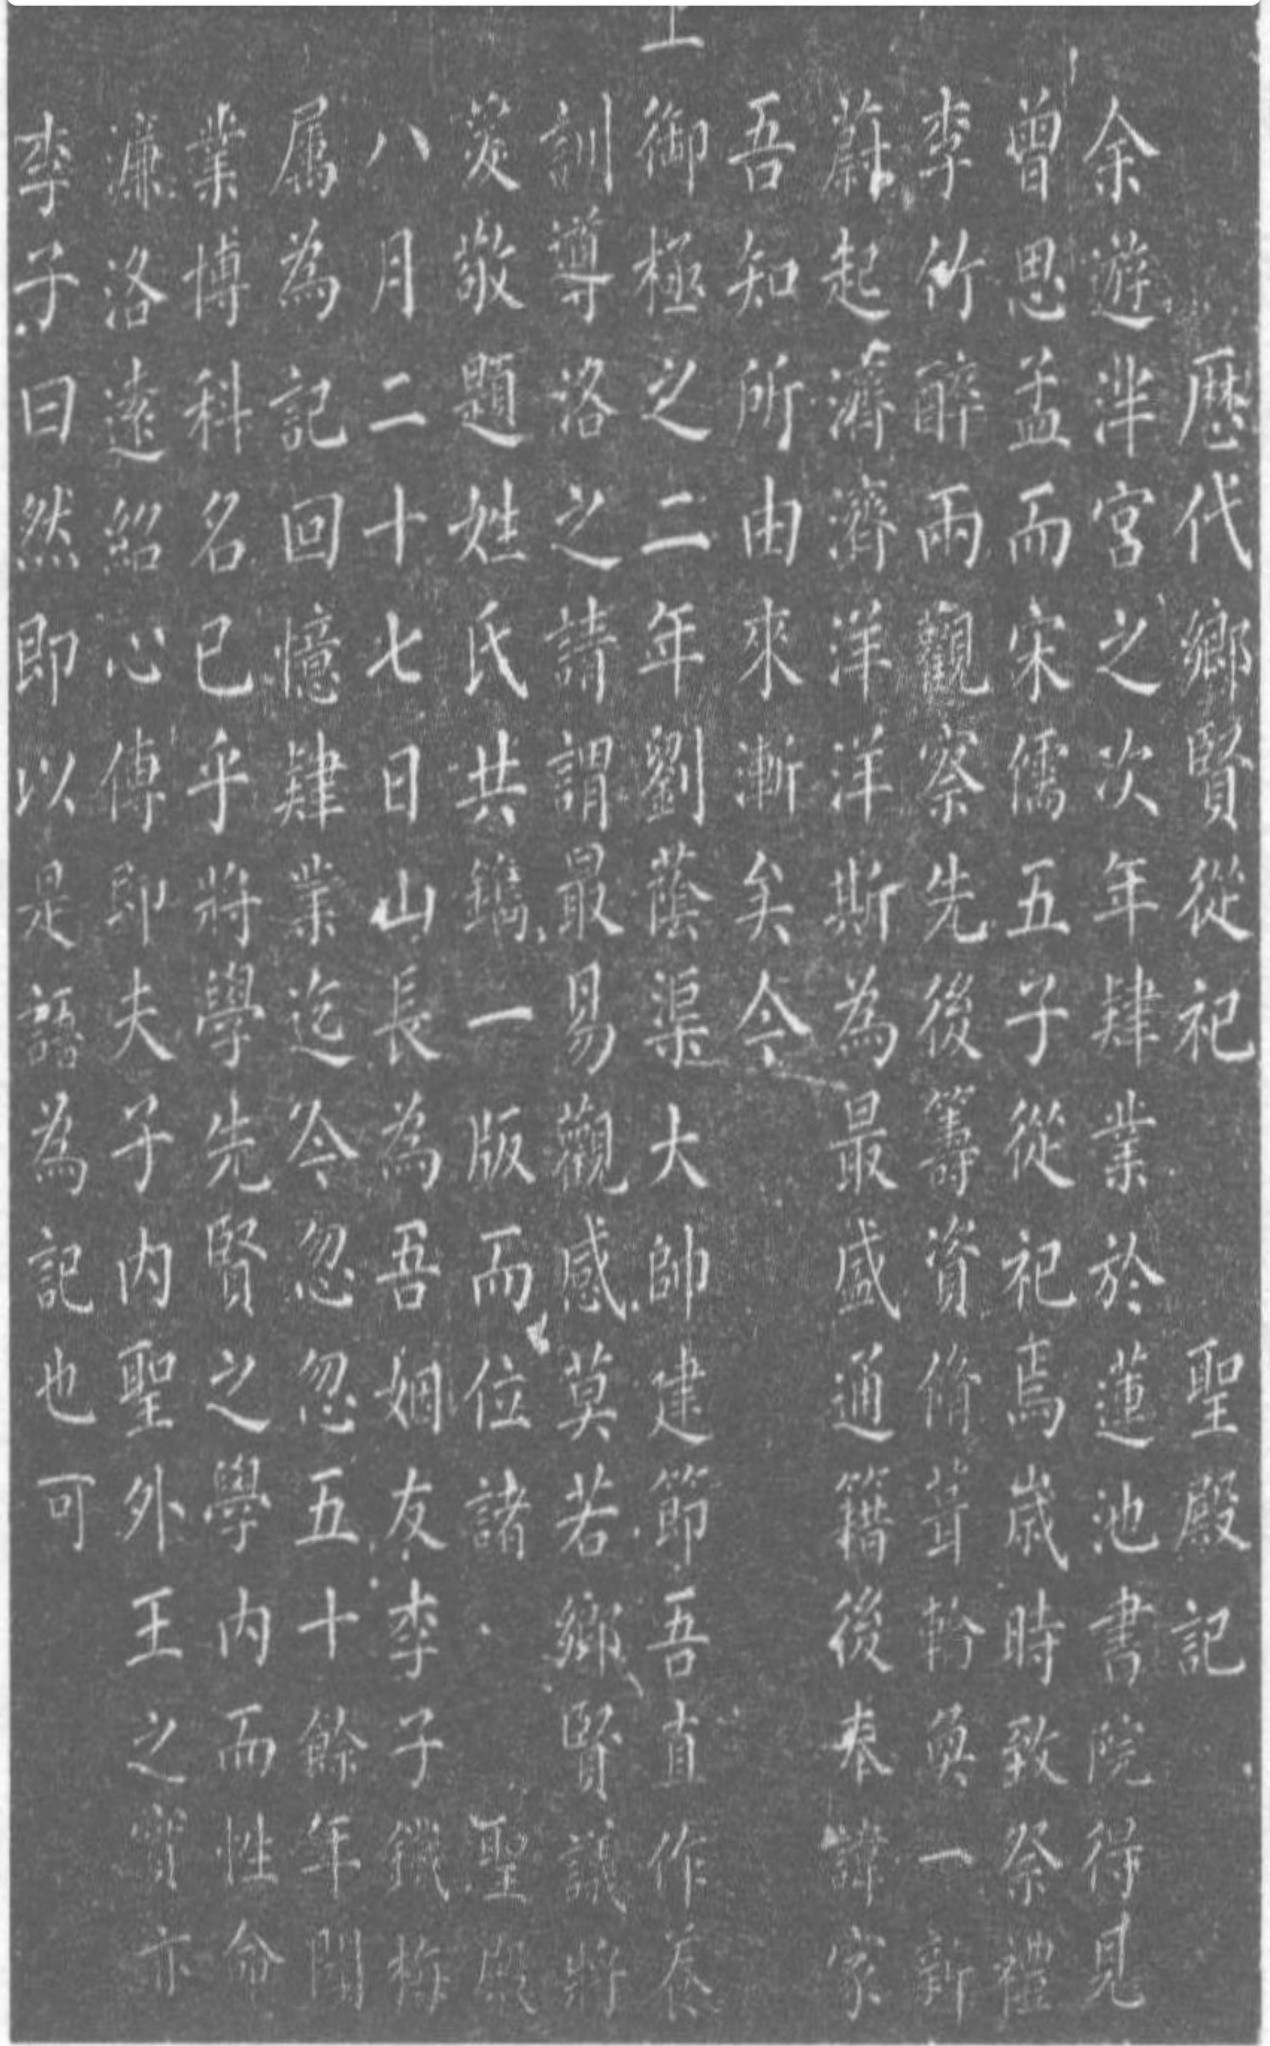 歷代鄉賢從祀聖殿記
余遊泮宮之次年肄業於蓮池書院得見
曾思孟而宋儒五子從祀焉歲時致祭禮
李竹醉兩觀察先後籌資脩葺輪奐一新
蔚起濟濟洋洋斯為最盛通籍後奉諱家
吾知所由來漸矣今
上
御極之二年劉蔭渠大帥建節吾直作養
訓導洛之請謂最易觀感莫若鄉賢議將
筴敬題姓氏共鐫一版而位諸聖殿
八月二十七日山長為吾姻友李子鐵梅
属為記回憶肄業迄今忽忽五十餘年聞
業博科名已乎將學先賢之學內而性命
濂洛遠紹心傳即夫子內聖外王之實亦
李子曰然即以是語為記也可